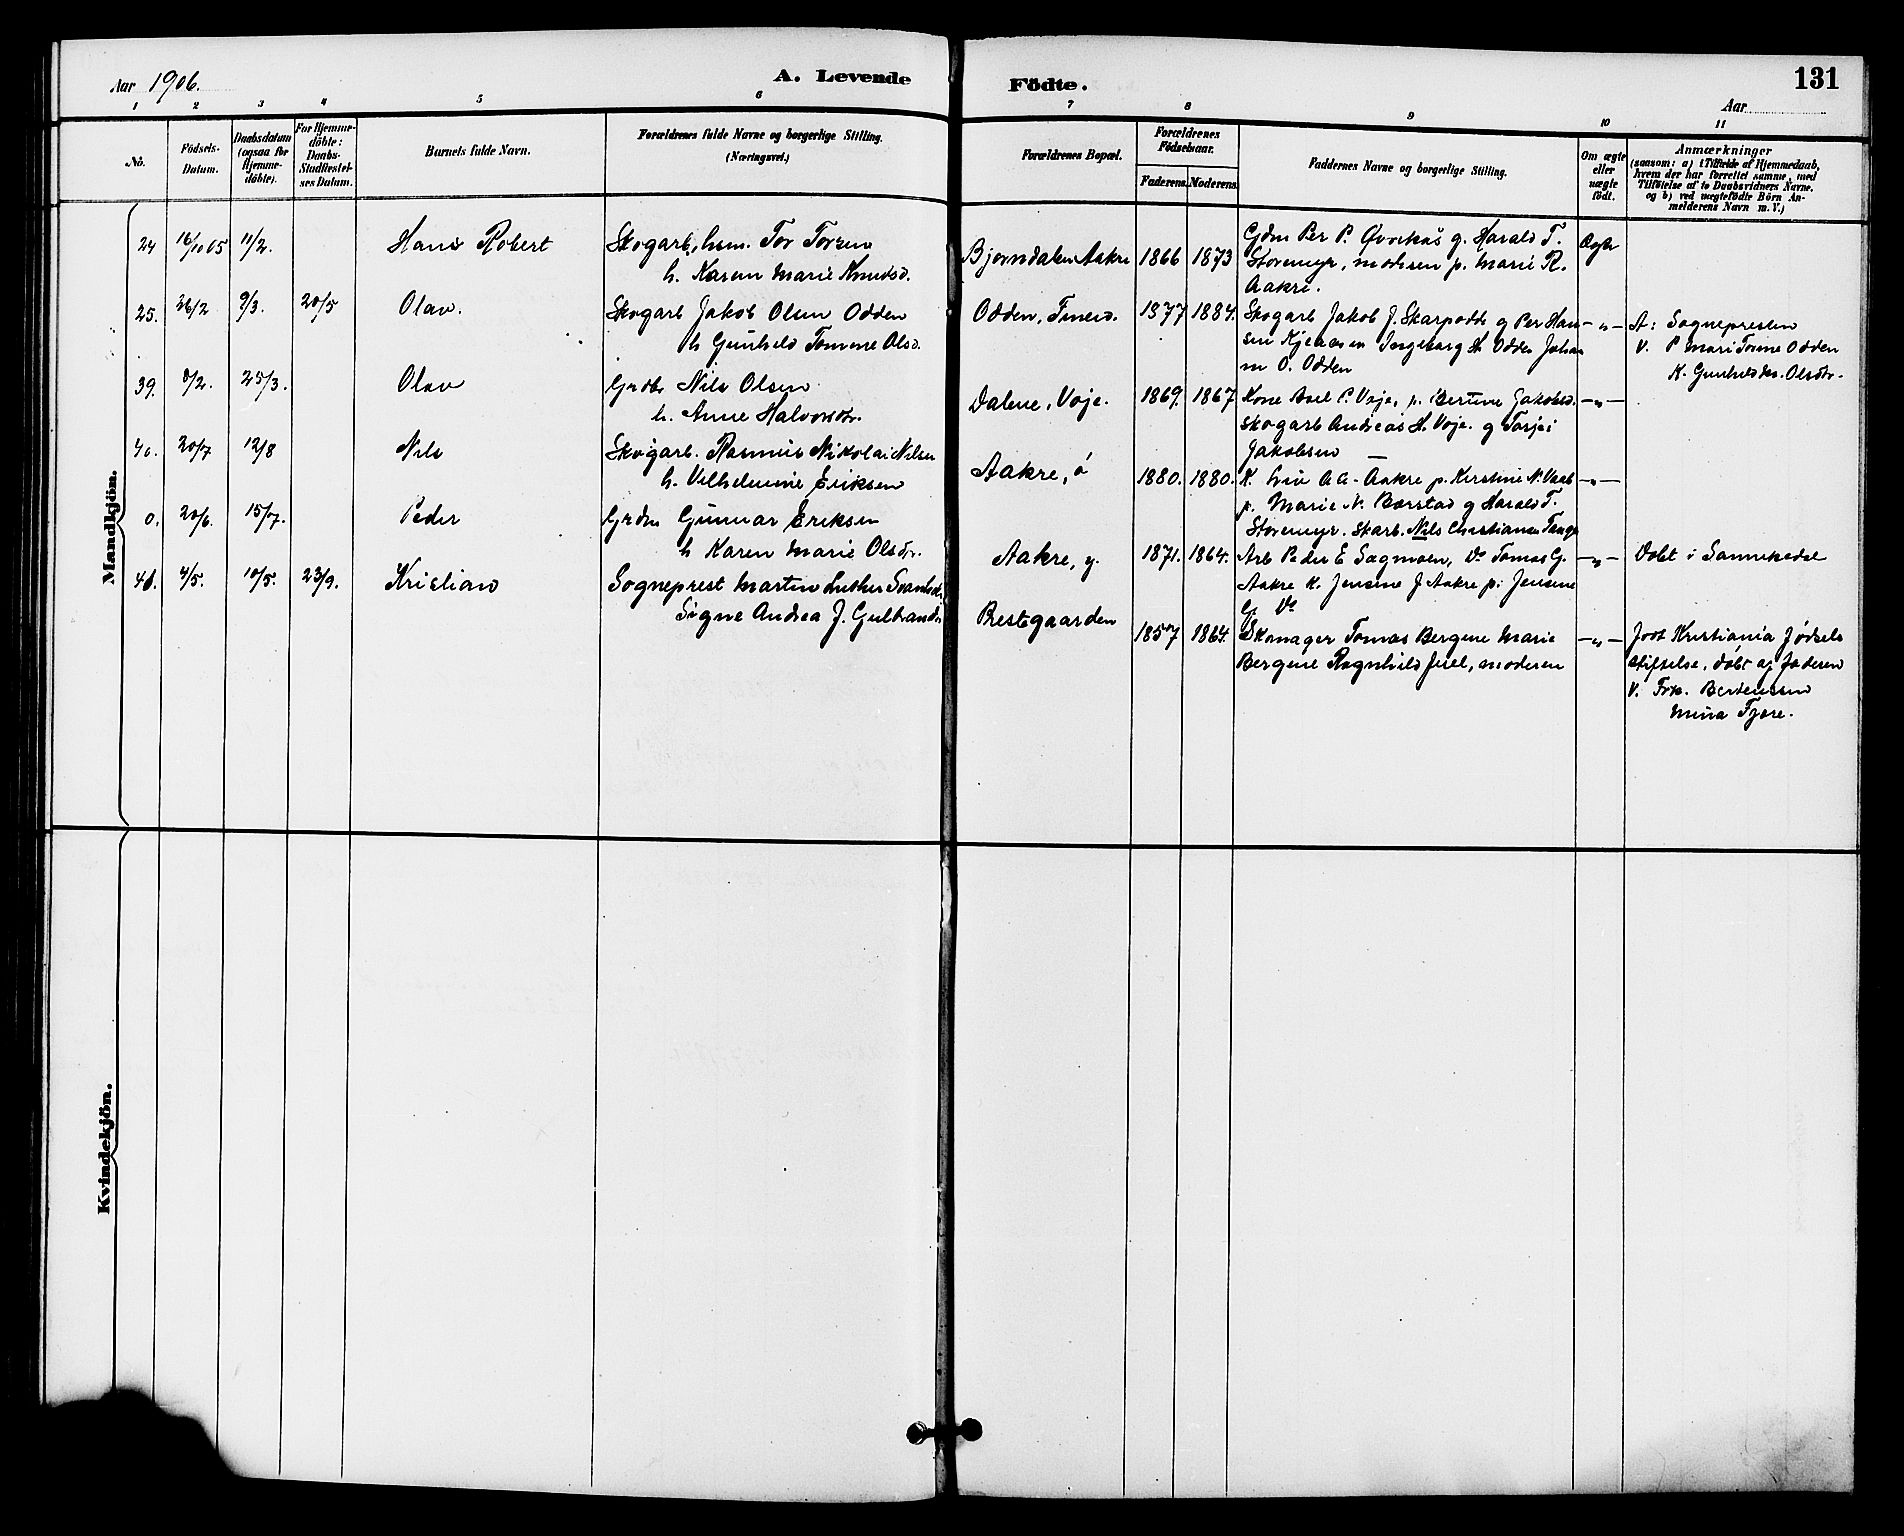 Aar 1906.
A. Levende
Födte.
131
Aar
1 2 3 4 5 6 7 8 9 10 11
No.
Födsels-
Datum.
Daabsdatum
(ogsaa for
Hjemme-
döbte).
For Hjemme-
döbte:
Daabs-
Stadfæstel-
ses Datum.
Barnets fulde Navn.
Forældrenes fulde Navne og borgerlige Stilling.
(Næringsvei.)
Forældrenes Bopæl.
Forældrenes
Födselsaar.
Faderens. Moderens.
Faddernes Navne og borgerlige Stilling.
Om ægte
eller
uægte
födt.
Anmærkninger
(saasom: a) i Tilfælde af Hjemmedaab,
hvem der har forrettet samme, med
Tilföielse af to Daabsvidners Navne.
og b) ved uægtefödte Börn An-
melderens Navn m. V.)
Mandkjön.
24 16/10 05 11/2. Hans Robert
Skogarb., hsm. Tor Torsen
h. Karen Marie Knudsd.
Bjorndalen Aakre 1866 1873
Gdm Per P. g. Harald T.
Storemyr, moderen p. Marie R.
Aakre.
Ægte
25. 26/2 9/3. 20/5 Olav.
Skogarb Jakob Olsen Odden
h Gunhild Tomine Olsd.
Odden, 1877 1884.
Skogarb Jakob J. g Per Han-
sen Ingeborg H. Odden Johan
O. Odden
-"-
A: Sognepresten
V. P Mari Tomine Odden
K. Olsdtr.
39. 8/2. 25/3. Olav
Grdbr Nils Olsen
h. Anne Halvorsdtr.
Dalene, Voje. 1869. 1867
Kone Axel P. Voje, p. Berune Jakobsd.
skogarb Andreas H. Voje g Torje
Jakobsen
-"-
40. 20/7 12/8 Nils
Skogarb. Rasmus Nikolai Nilsen
h. Vilhelmine Eriksen
Aakre, ö 1880. 1880.
K. Liv A A. Aakre p. Kirstine N.
p. Marie N. Barstad g Harald T.
Storemyr. Skarb. Nils Christiansen
-"-
0. 20/6. 15/7. Peder
Grdm Gunnar Eriksen
h Karen Marie Olsdtr.
Aakre, y. 1871. 1864.
Arb Peder E Sagmoen, Do Tomas G.
Aakre K. Jensine J Aakre p. Jensine
G. Do
-"-
Döbt i Sannekedal
41. 4/5. 10/5. 23/9. Kristian
Sogneprest Martin Luther
Signe Andrea J. Gulbrands
Prestgaarden 1857 1864.
Skomager Tomas Bergene Marie
Bergene Ragnhild Juel, moderen
-"-
Födt Kristiania Födsels
stiftelse, döbt af faderen
V. Frk. Berteussen
Mina Tjære.
Kvindekjön.